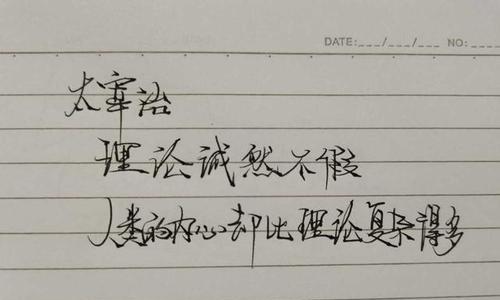 DATE:___/___/___ NO:
太宰治
理论诚然不假
人类的内心却比理论复杂得多